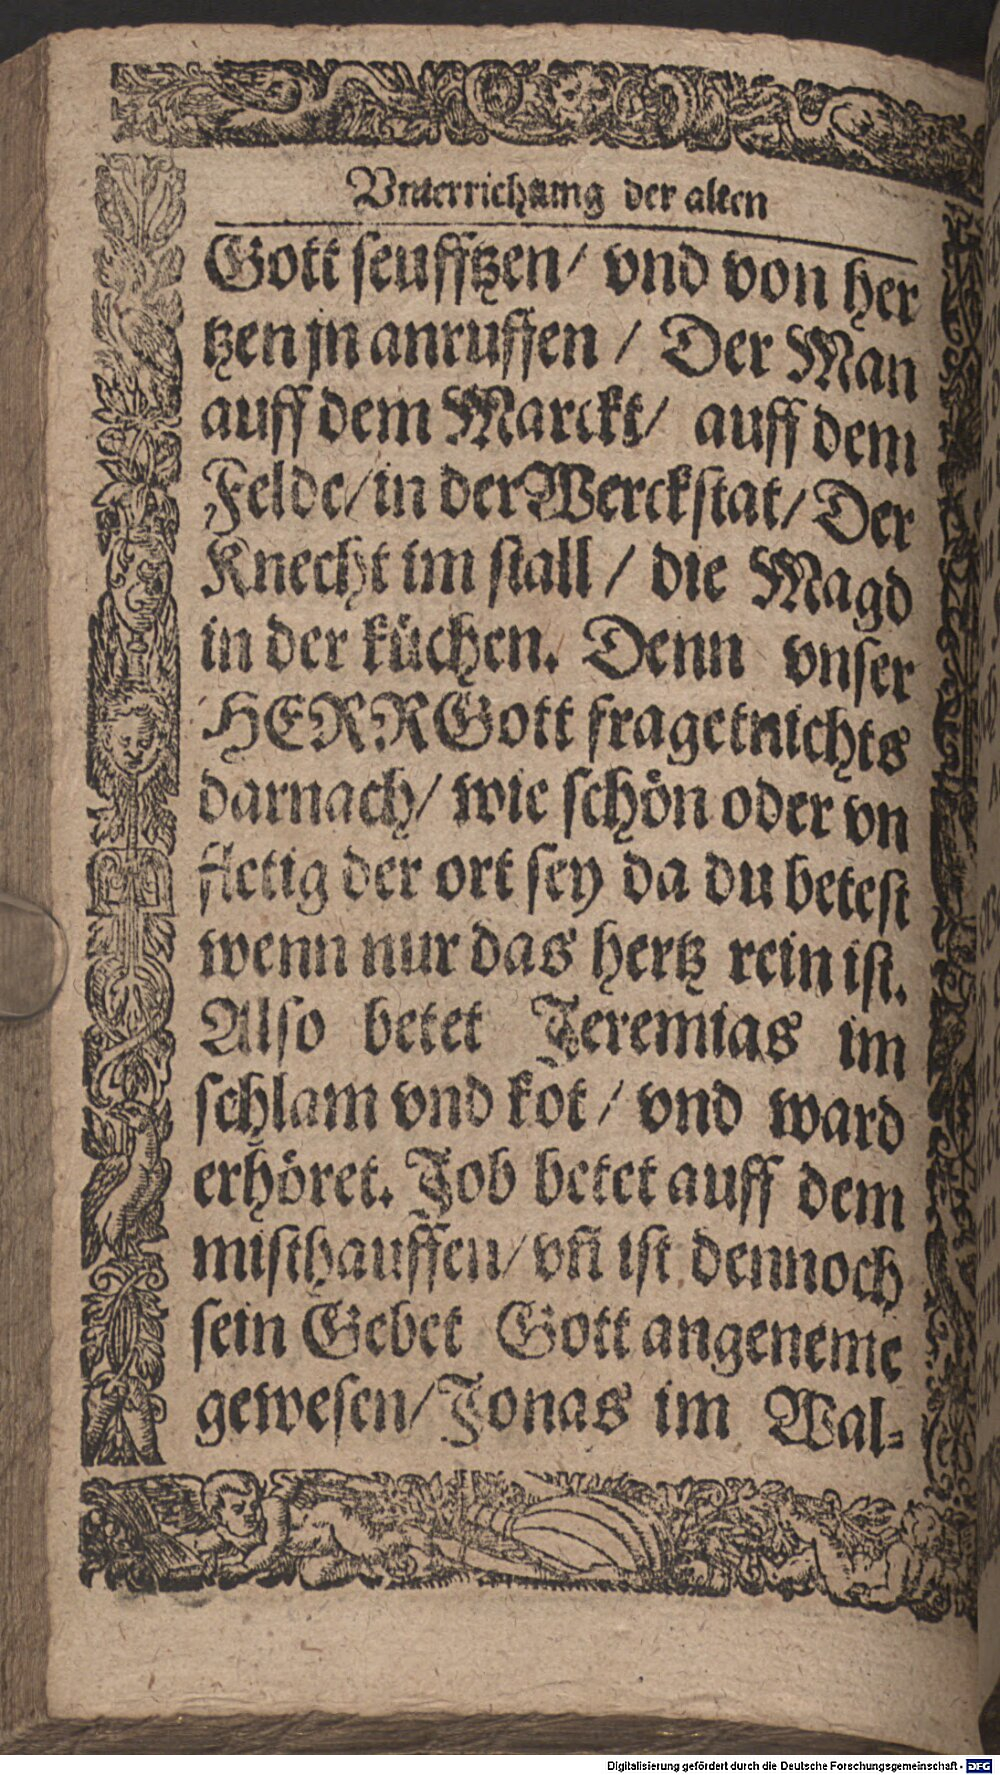 Vnterrichtung der alten
Gott seufftzen/ vnd von her
tzen jn anruffen / Der Man
auff dem Marckt/ auff dem
Felde/ in der Werckstat/ Der
Knecht im stall / die Magd
in der küchen. Denn vnser
HERR Gott fraget nichts
darnach/ wie schön oder vn
fletig der ort sey da du betest
wenn nur das hertz rein ist.
Also betet Jeremias im
schlam vnd kot / vnd ward
erhöret. Job betet auff dem
misthauffen/ vñ ist dennoch
sein Gebet Gott angeneme
gewesen/ Jonas im Wal-
Digitalisierung gefördert durch die Deutsche Forschungsgemeinschaft - DFG